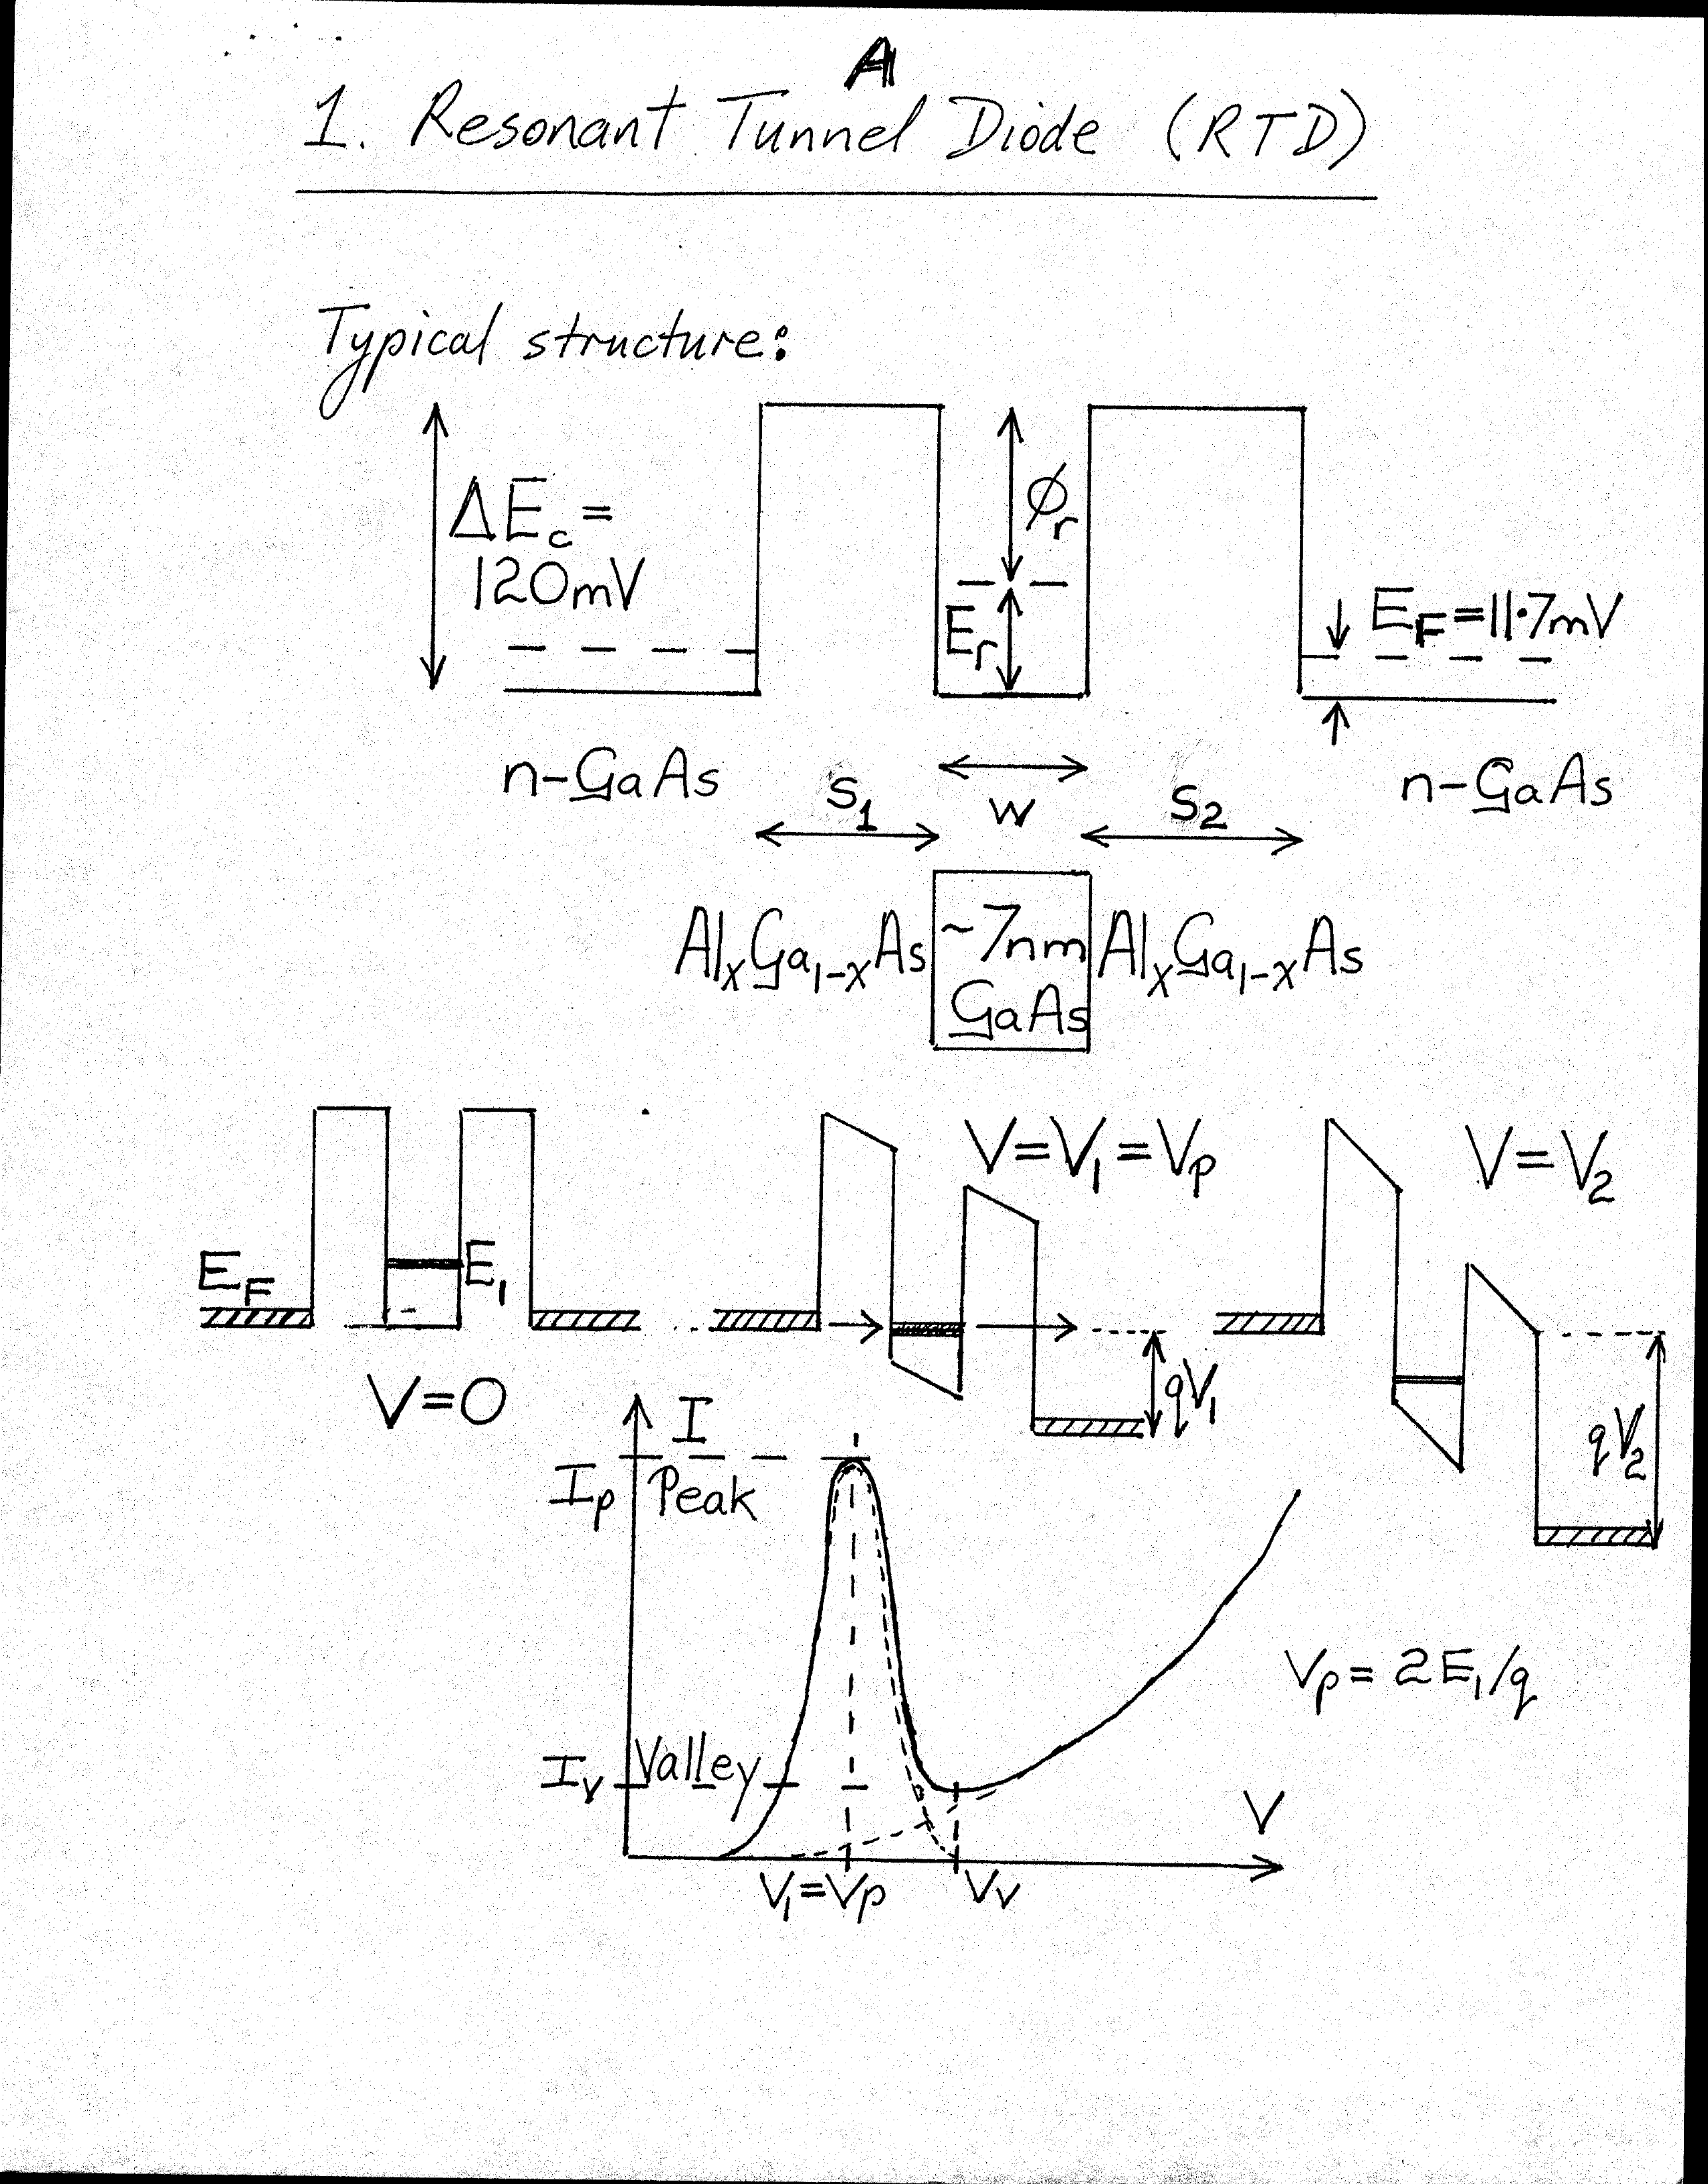 A
1. Resonant Tunnel Diode (RTD)
Typical structure:
ΔEc =
120mV
φr
Er
EF=11·7mV
n-GaAs
S1
w
S2
n-GaAs
AlxGa1-xAs
~7nm
GaAs
AlxGa1-xAs
EF
E1
V=0
V=V1=Vp
qV1
V=V2
qV2
I
Ip
Peak
Iv
Valley
V
V1=Vp
Vv
Vp = 2E1/q